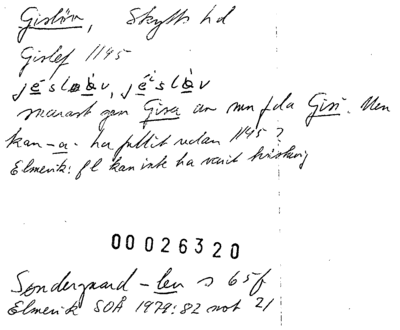 Gislöv, Skytts hd
Gislef 1145
jèslòv, jèslàv
snarast gen Gisa av mn fda Gisi. Men
kan -a- ha fallit redan 1145?
Elmevik: fl kan inte ha varit
00026320
Søndergaard -lev s 65f
Elmevik SOÅ 1979:82 not 21